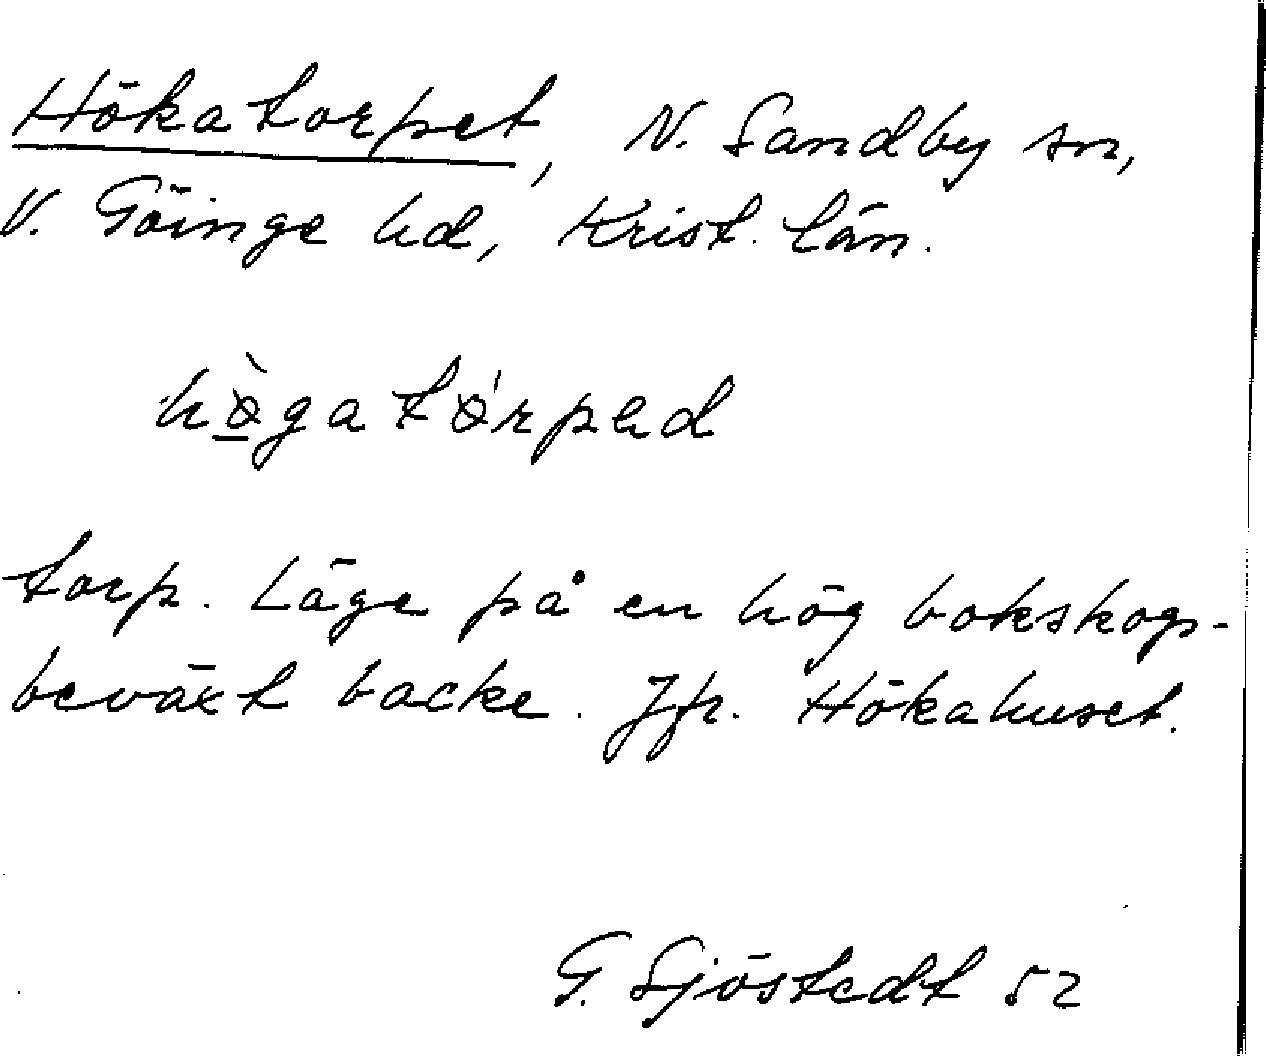 Hökatorpet, N. Sandby sn,
V. Göinge hd, Krist. län.
hø̱̀gatǿrpəd
torp. Läge på en hög bokskogs-
beväxt backe. Jfr. Hökahuset.
G. Sjöstedt 52